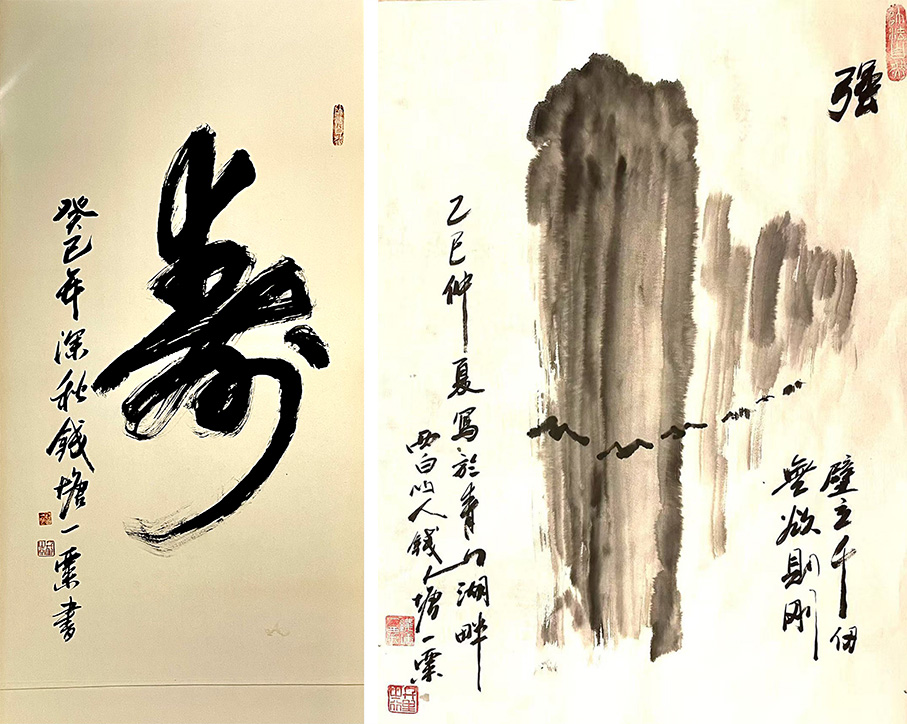 寿
癸巳年深秋錢塘一粟書
强
壁立千仞
無欲則剛
乙巳仲夏寫於青山湖畔
西白山人錢塘一粟